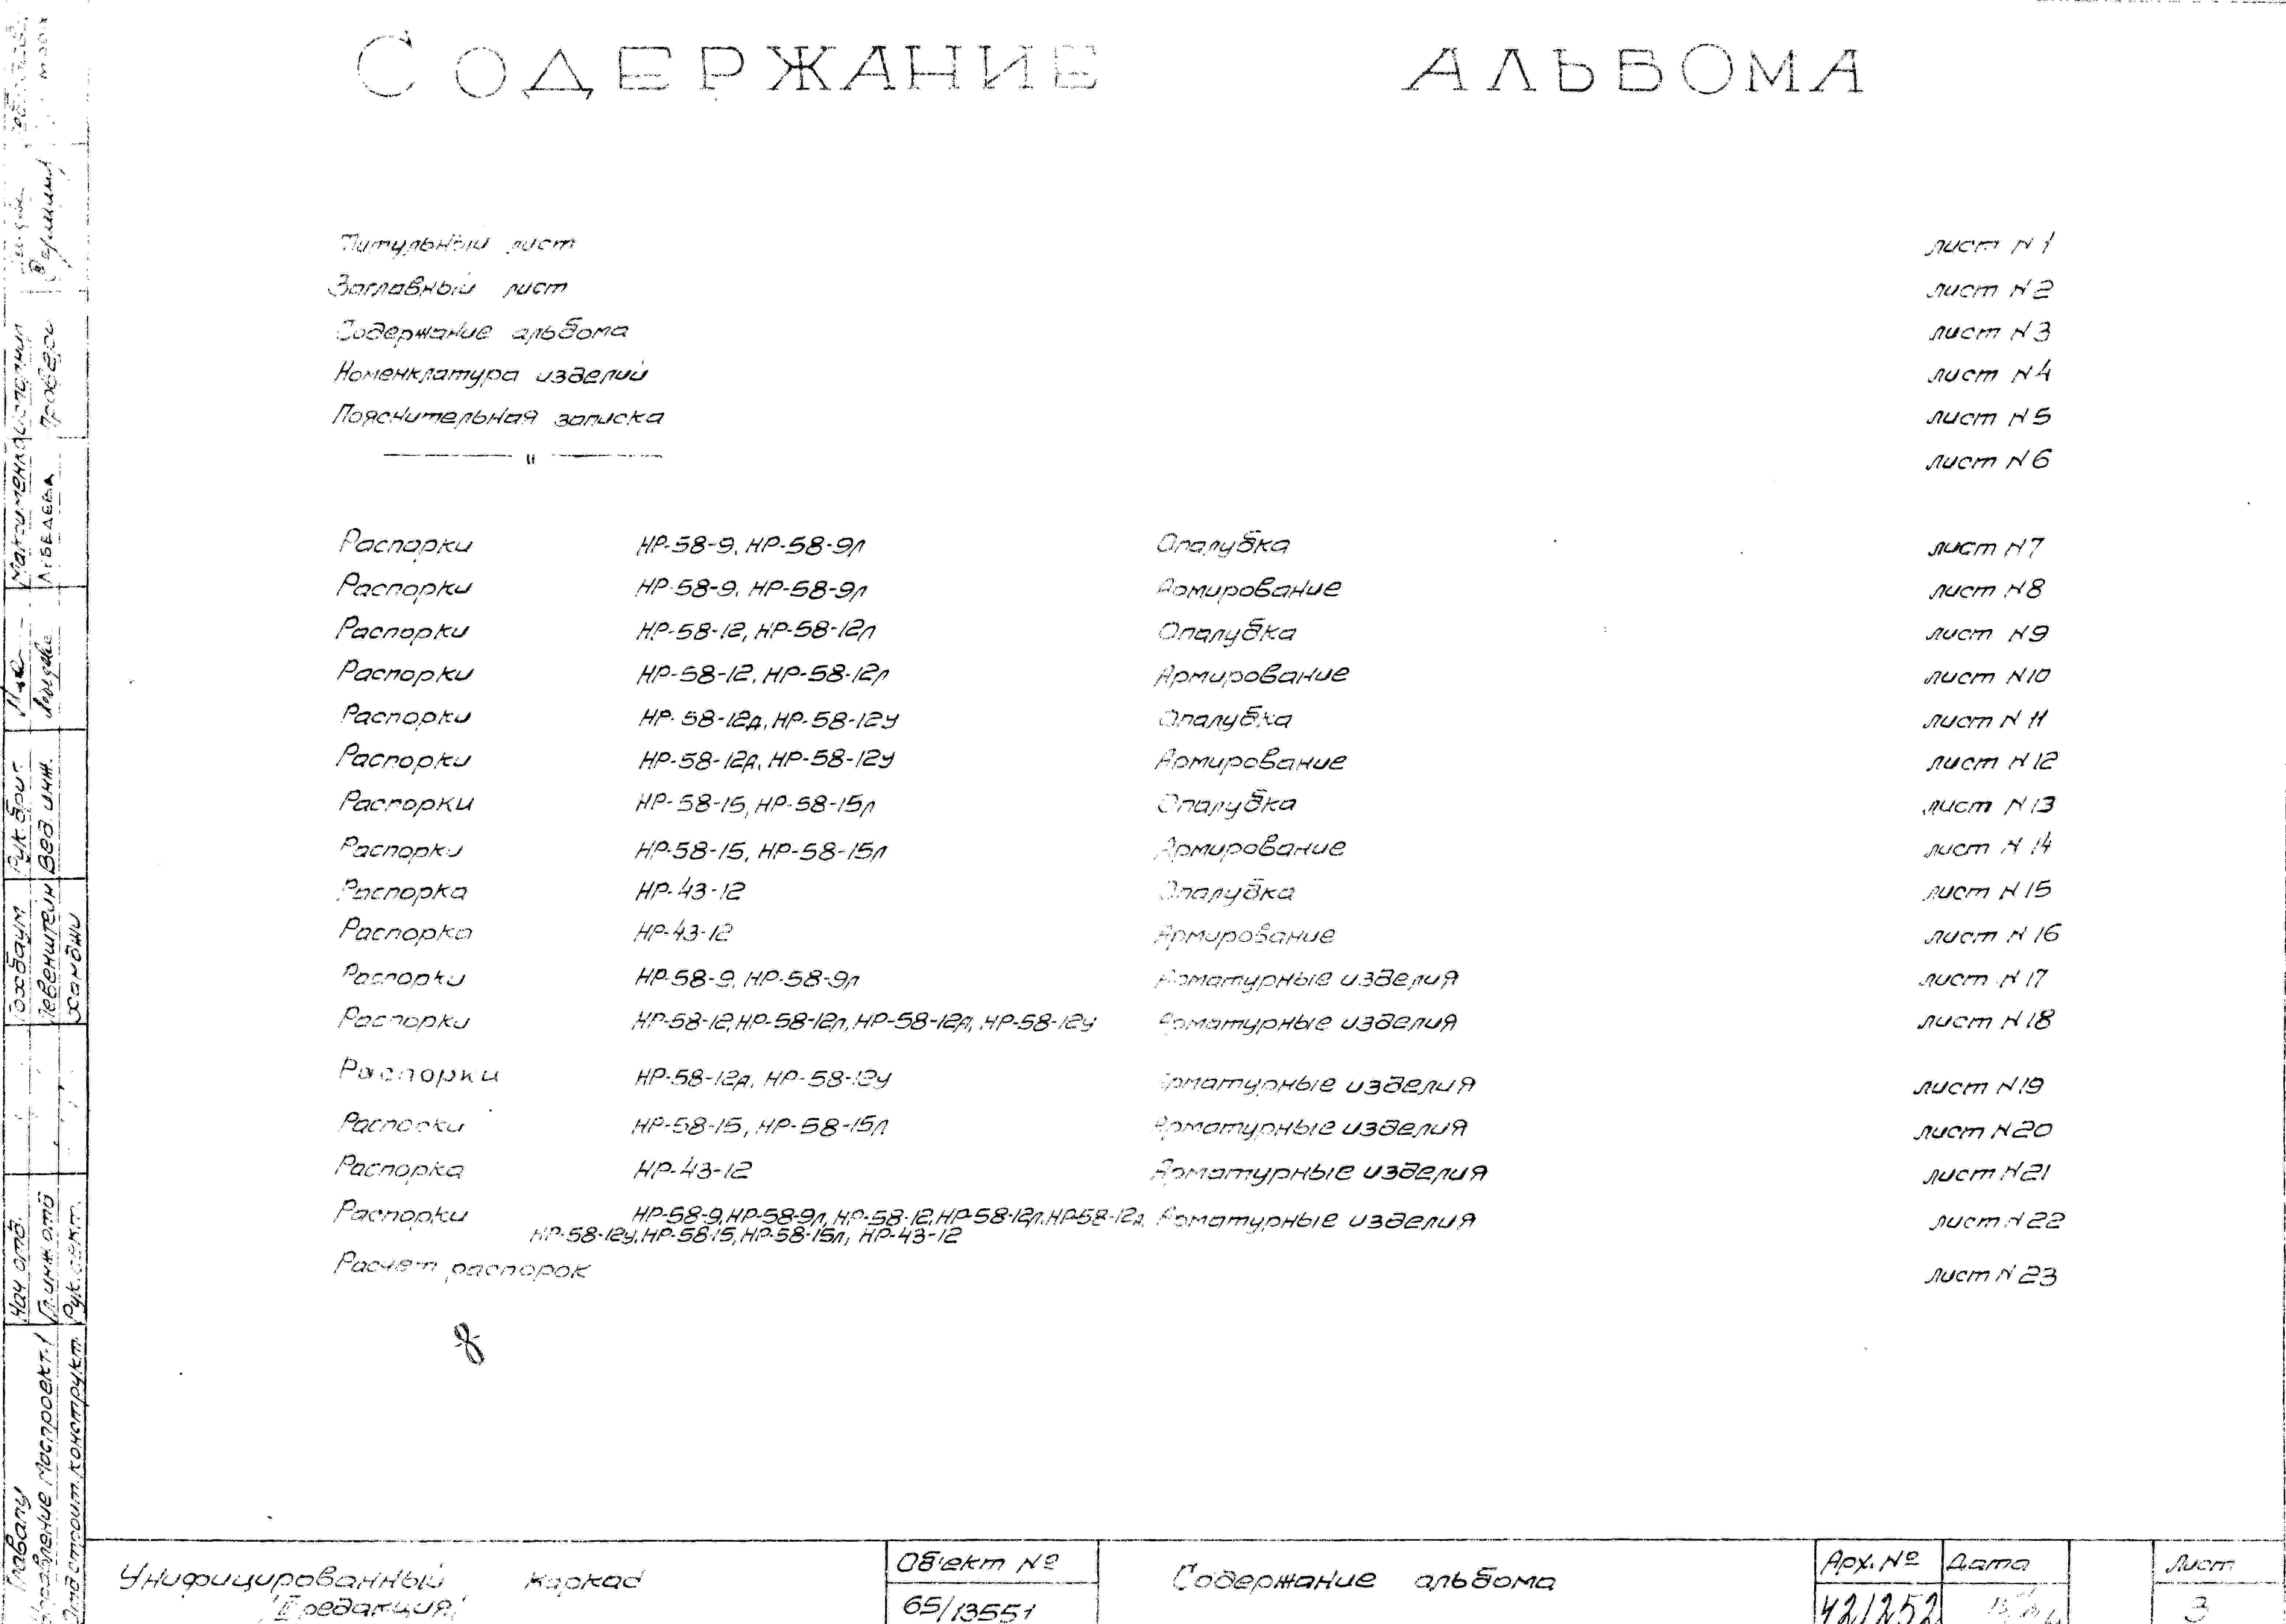 СОДЕРЖАНИЕ АЛЬБОМА
Титульный лист лист N 1
Заглавный лист лист N 2
Содержание альбома лист N 3
Номенклатура изделий лист N 4
Пояснительная записка лист N 5
— " — лист N 6
Распорки НР-58-9, НР-58-9л Опалубка лист N 7
Распорки НР-58-9, НР-58-9л Армирование лист N 8
Распорки НР-58-12, НР-58-12л Опалубка лист N 9
Распорки НР-58-12, НР-58-12л Армирование лист N 10
Распорки НР-58-12д, НР-58-12у Опалубка лист N 11
Распорки НР-58-12д, НР-58-12у Армирование лист N 12
Распорки НР-58-15, НР-58-15л Опалубка лист N 13
Распорки НР-58-15, НР-58-15л Армирование лист N 14
Распорка НР-43-12 Опалубка лист N 15
Распорка НР-43-12 Армирование лист N 16
Распорки НР-58-9, НР-58-9л Арматурные изделия лист N 17
Распорки НР-58-12, НР-58-12л, НР-58-12д, НР-58-12у Арматурные изделия лист N 18
Распорки НР-58-12д, НР-58-12у Арматурные изделия лист N 19
Распорки НР-58-15, НР-58-15л Арматурные изделия лист N 20
Распорка НР-43-12 Арматурные изделия лист N 21
Распорки НР-58-9, НР-58-9л, НР-58-12, НР-58-12л, НР-58-12д, Арматурные изделия лист N 22
НР-58-12у, НР-58-15, НР-58-15л, НР-43-12
Расчет распорок лист N 23
Унифицированный каркас
II редакция
Объект №
65/13551
Содержание альбома
Арх. №
421252
Дата
Лист
3
Главапу
Управление Моспроект-1
Отд строит. конструкт.
Нач отд.
Гл. инж. отд
Рук. сект.
Гохбаум
Левенштейн
Ханджи
Рук. бриг.
Вед. инж.
Максименко
Лебедева
Исполнил
Проверил